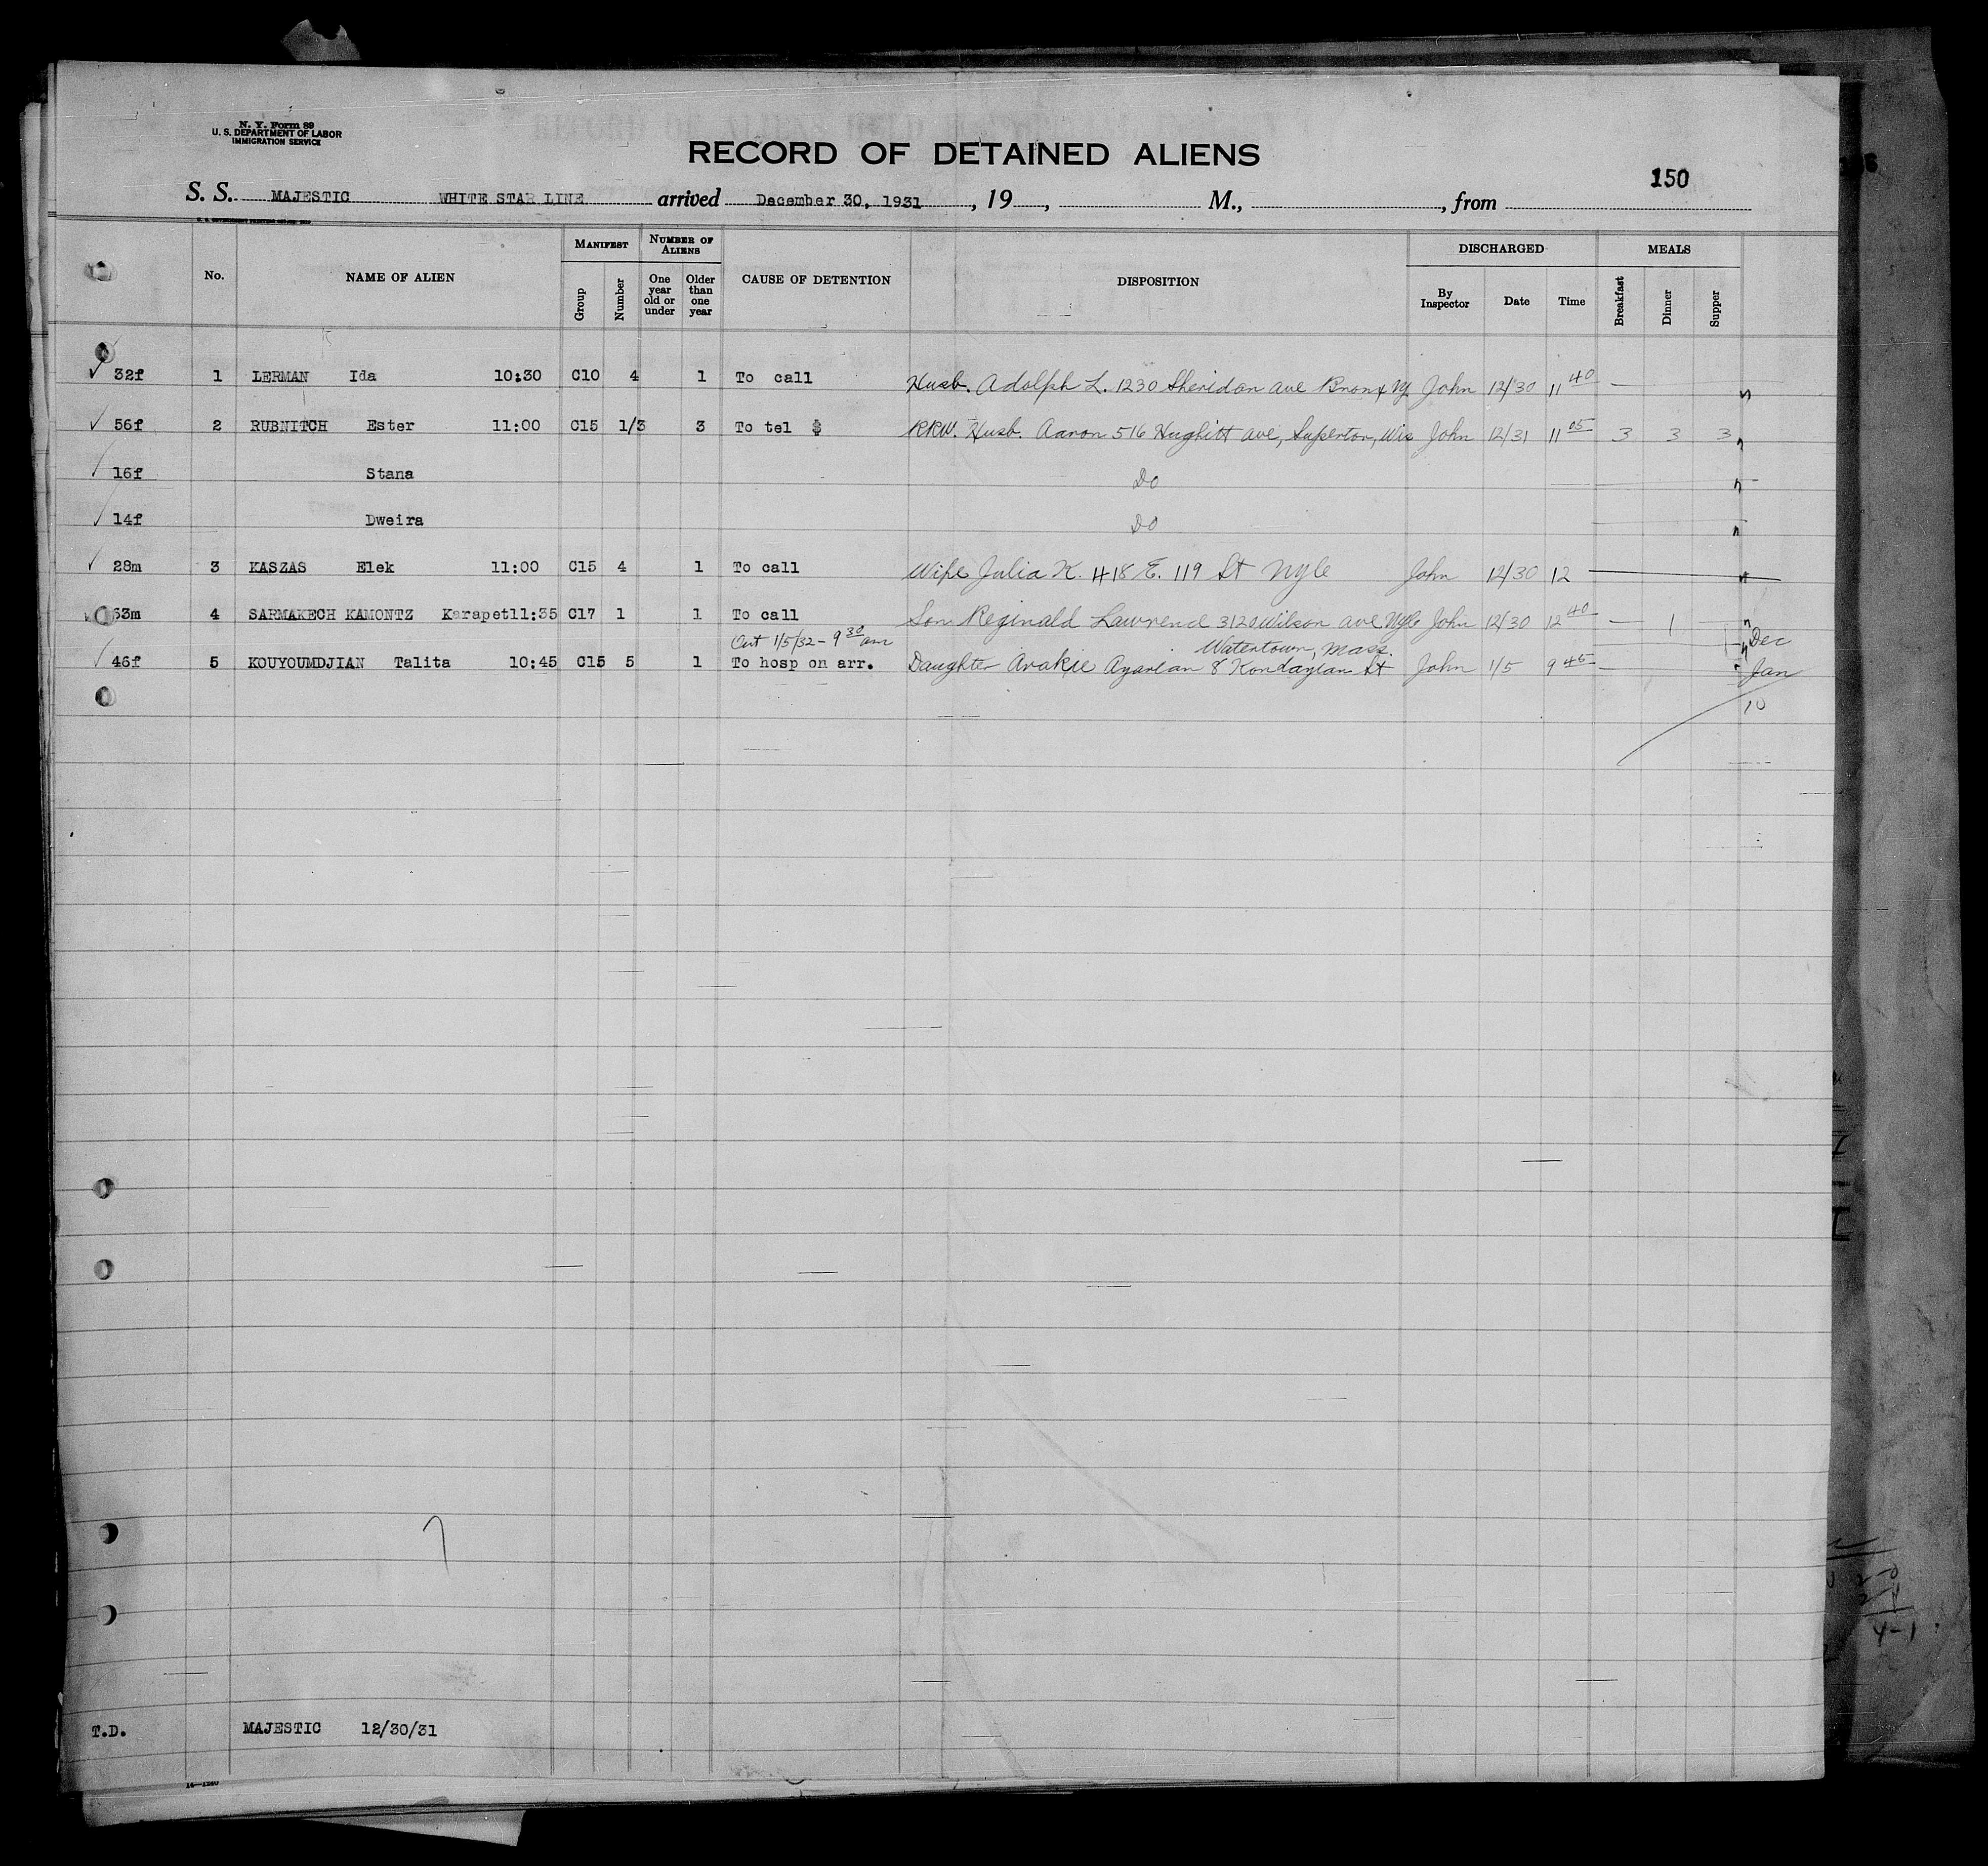 N. Y. Form 89
U. S. DEPARTMENT OF LABOR
IMMIGRATION SERVICE
RECORD OF DETAINED ALIENS
150
S. S. MAJESTIC WHITE STAR LINE arrived December 30, 1931, 19 , M., , from
No. NAME OF ALIEN MANIFEST NUMBER OF ALIENS CAUSE OF DETENTION DISPOSITION DISCHARGED MEALS
Group Number One year old or under Older than one year By Inspector Date Time Breakfast Dinner Supper
32f 1 LERMAN Ida 10:30 C10 4 1 To call Husb. Adolph L. 1230 Sheridan ave Bronx Ny. John 12/30 11 40 —
56f 2 RUBNITCH Ester 11:00 C15 1/3 3 To tel $ RRW. Husb. Aaron 516 Hughitt ave, Superton, Wis John 12/31 11 05 3 3 3
16f Stana Do
14f Dweira Do
28m 3 KASZAS Elek 11:00 C15 4 1 To call Wife Julia K. 418 E. 119 St Nyc John 12/30 12
63m 4 SARMAKECH KAMONTZ Karapet 11:35 C17 1 1 To call Son Reginald Lawrence 3120 Wilson ave Nyc John 12/30 12 40 — 1
Out 1/5/32 - 9 30 am Watertown, Mass. Dec
46f 5 KOUYOUMDJIAN Talita 10:45 C15 5 1 To hosp on arr. Daughter Arakie 8 St John 1/5 9 45 — Jan
10
T.D. MAJESTIC 12/30/31